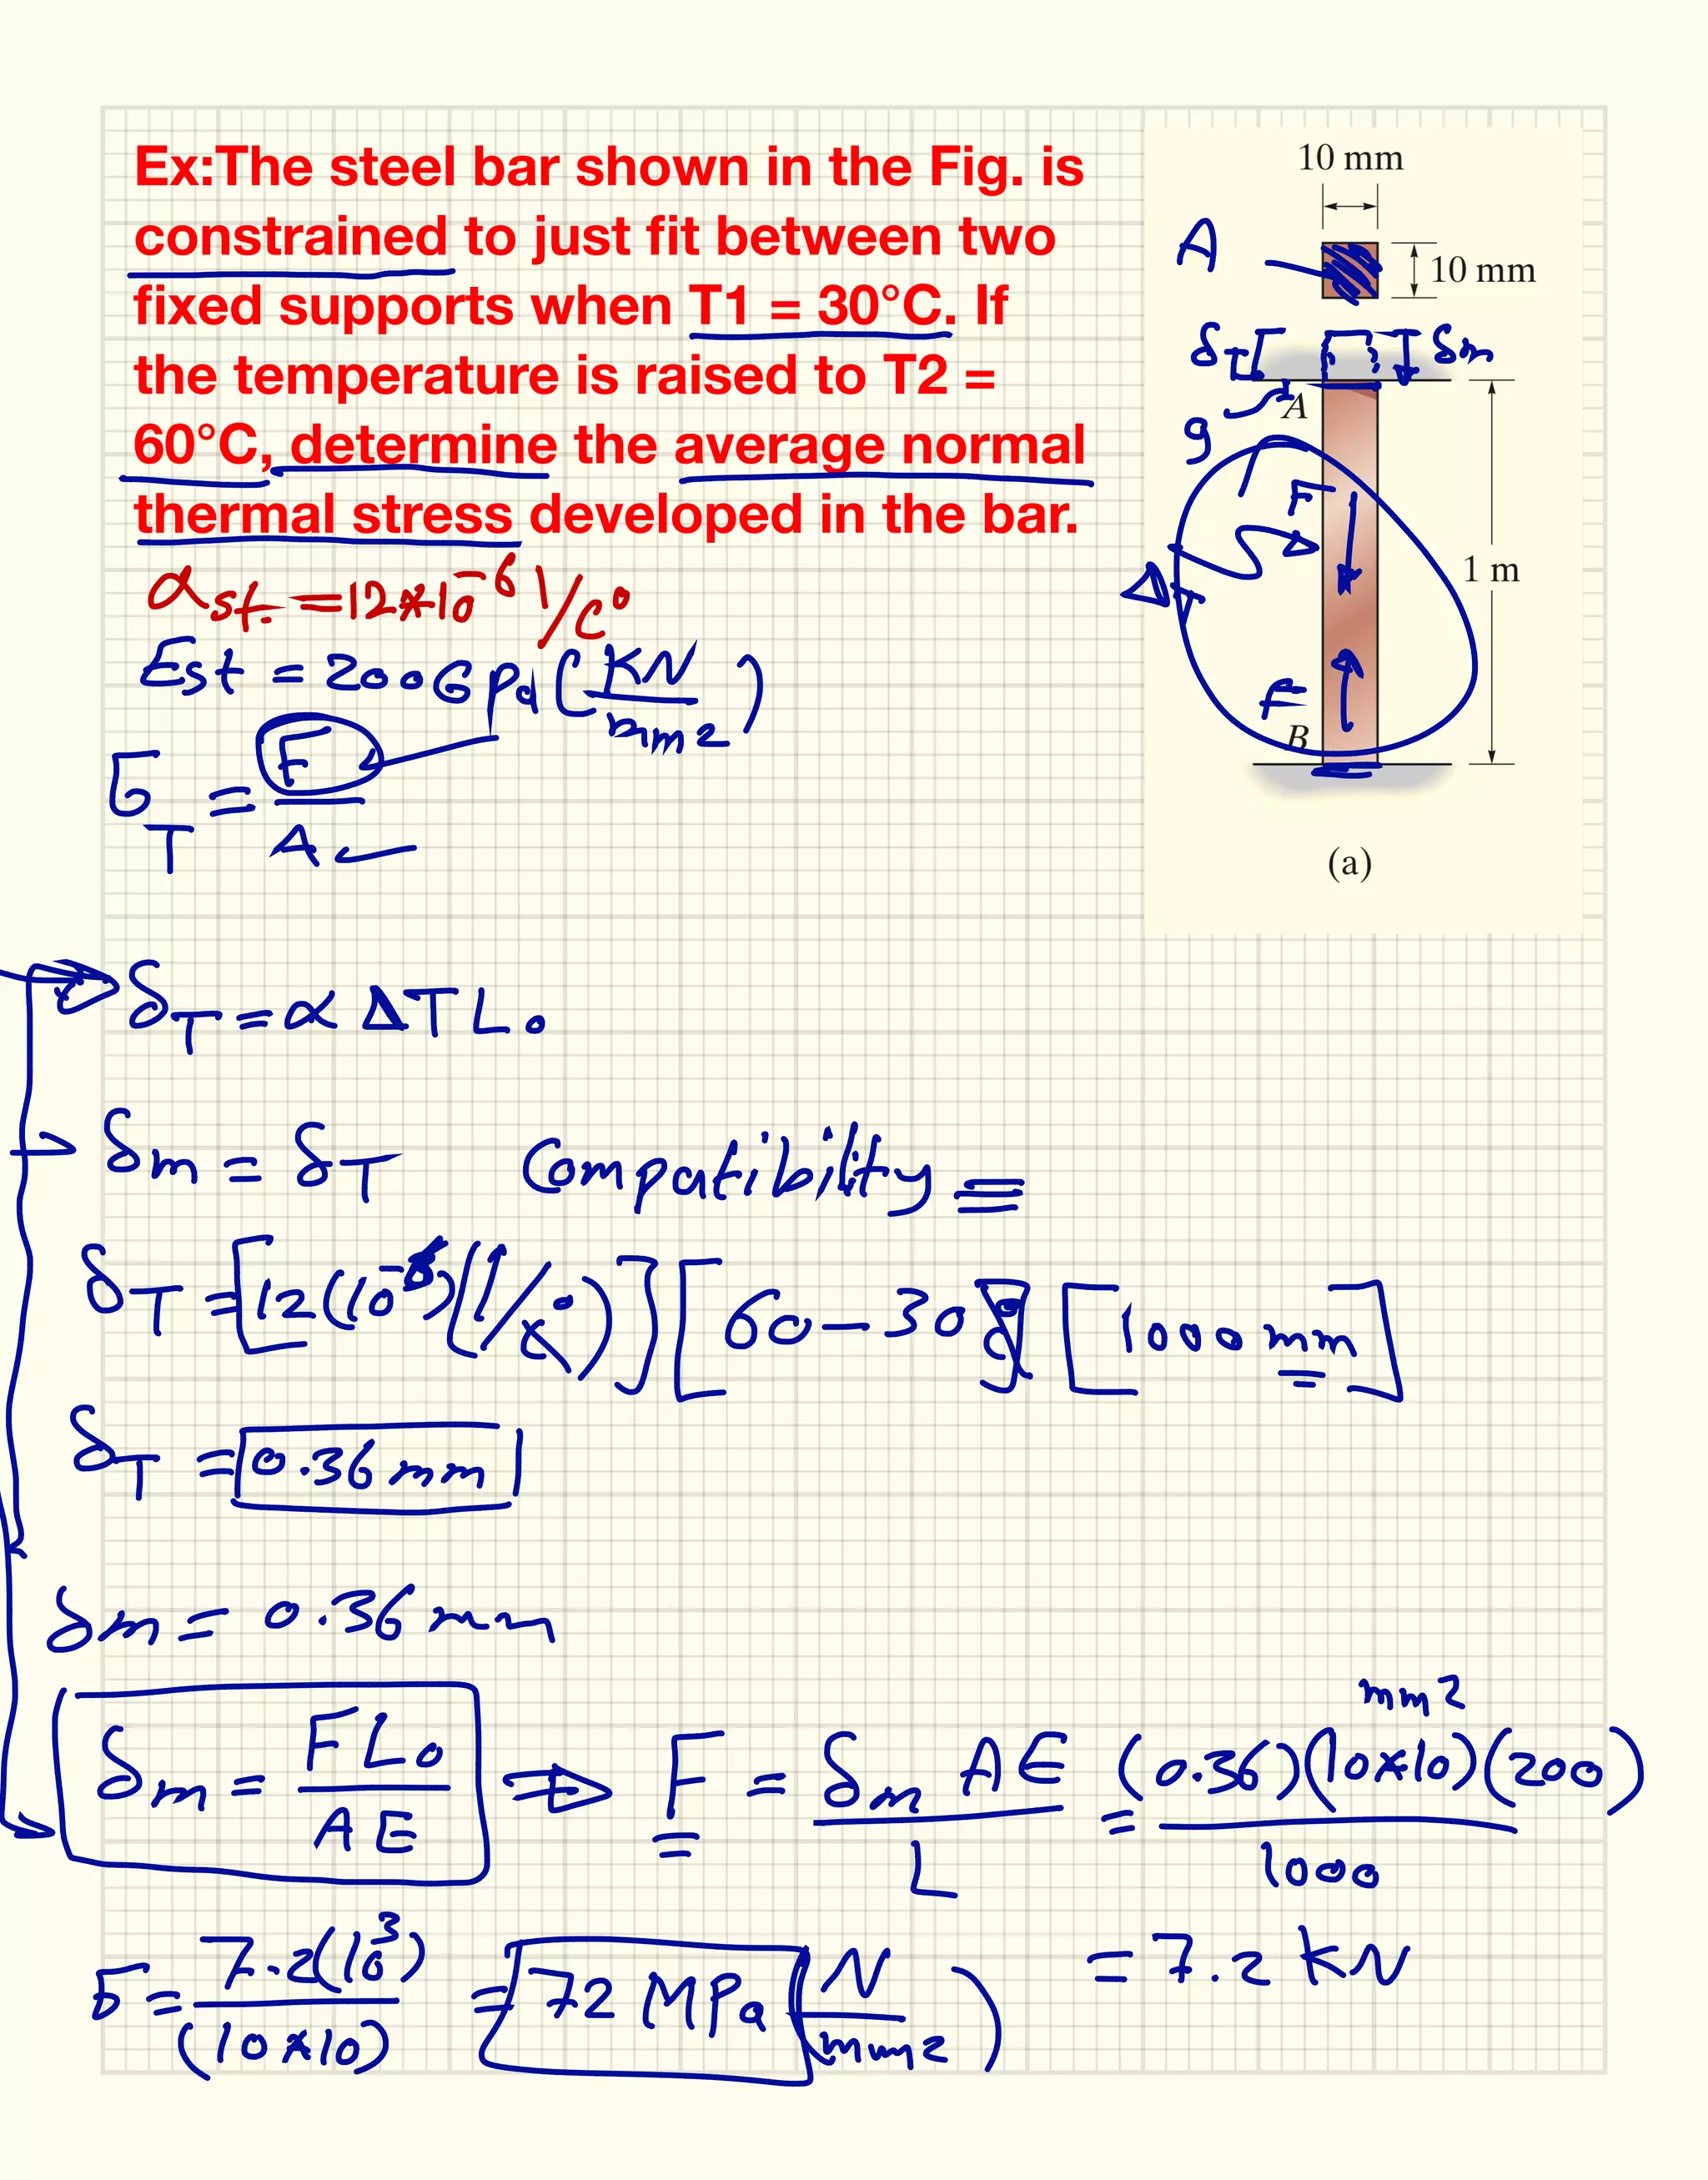 Ex:The steel bar shown in the Fig. is
constrained to just fit between two
fixed supports when T1 = 30°C. If
the temperature is raised to T2 =
60°C, determine the average normal
thermal stress developed in the bar.
10 mm
A
10 mm
δT
δm
A
g
F
ΔT
1 m
F
B
(a)
αst. = 12*10⁻⁶ 1/C°
Est = 200 GPa (KN/mm2)
σT = F/A
δT = α ΔT L₀
δm = δT Compatibility
δT = [12(10⁻⁶)(1/C°)] [60-30 C°] [1000 mm]
δT = 0.36 mm
δm = 0.36 mm
mm2
δm = FL₀/AE ⇒ F = δm AE/L = (0.36)(10*10)(200)/1000
= 7.2 KN
σ = 7.2(10³)/(10*10) = 72 MPa (N/mm2)